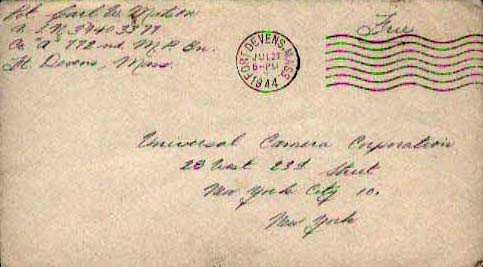 Pvt. Carl W. Madson
A.S.N.
Co "A" 772 nd. M.P. Bn.
Ft. Devens, Mass.
FORT DEVENS, MASS
JUL 27
6-PM
1944
Free
Universal Camera Corporation
28 West 23d Street
New York City 10.
New York